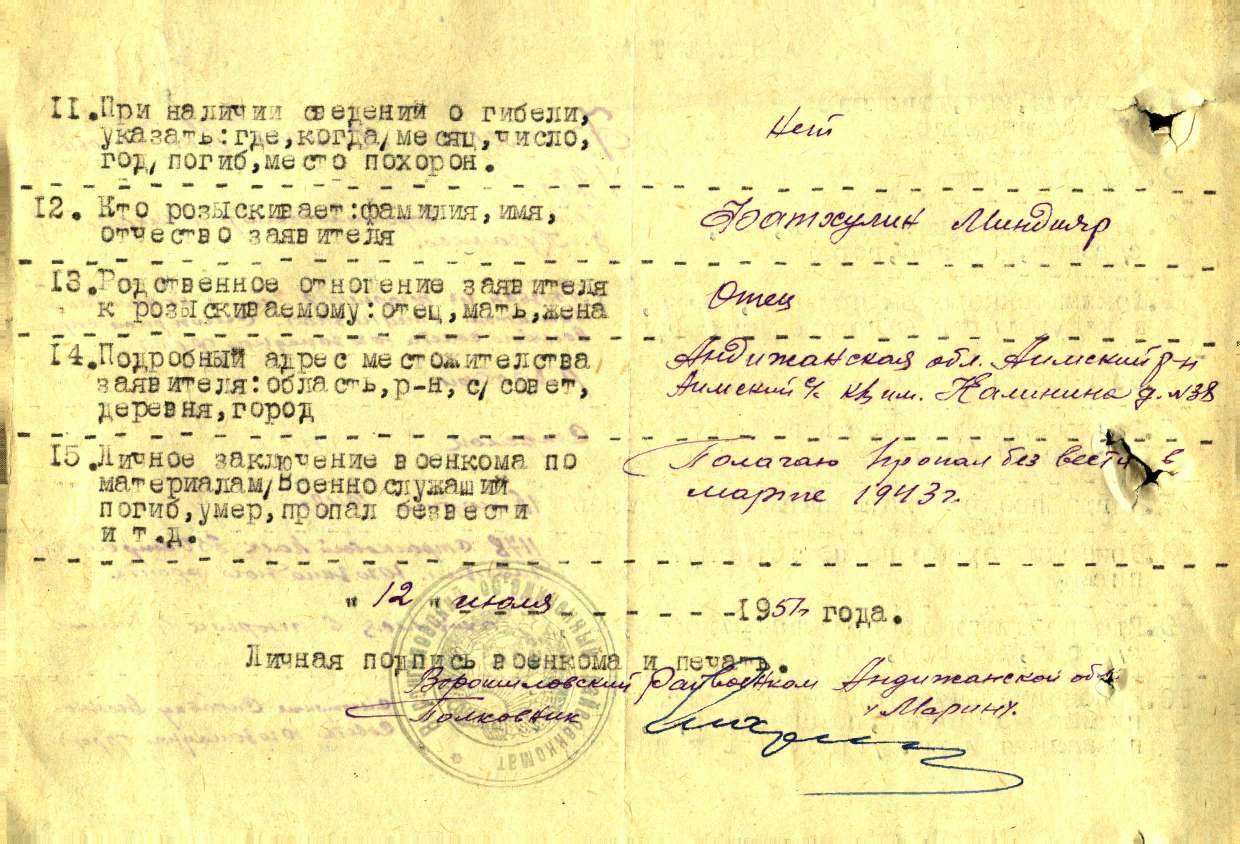 11. При наличии сведений о гибели,
указать:где,когда/месяц,число,
год/погиб,место похорон.
Нет
12. Кто розыскивает:фамилия,имя,
отчество заявителя
Фатхулин Миндияр
13. Родственное отногение заявителя
к розыскиваемому:отец,мать,жена
Отец
14. Подробный адрес местожителства
заявителя:область,р-н,с/совет,
деревня,город
Андижанская обл. Аимский р-н
Аимский с/с им. Калинина д. №38
15. Личное заключение военкома по
материалам/военнослужаший
погиб,умер,пропал безвести
и т.д.
Полагаю пропал без вести в
марте 1943 г.
"12" июля 1957 года.
Личная подпись военкома и печать.
Ворошиловский Райвоенком Андижанской обл
Полковник /Марин/.